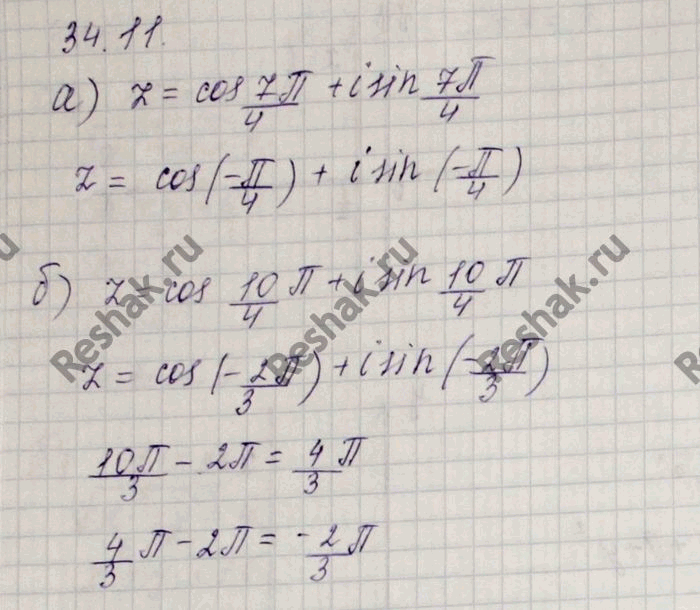 34.11.
а) z = cos 7П/4 + i sin 7П/4
z = cos (-П/4) + i sin (-П/4)
б) z = cos 10/4 П + i sin 10/4 П
z = cos (- 2П/3) + i sin (- 2П/3)
10П/3 - 2П = 4/3 П
4/3 П - 2П = - 2/3 П
Reshak.ru
Reshak.ru
Reshak.ru